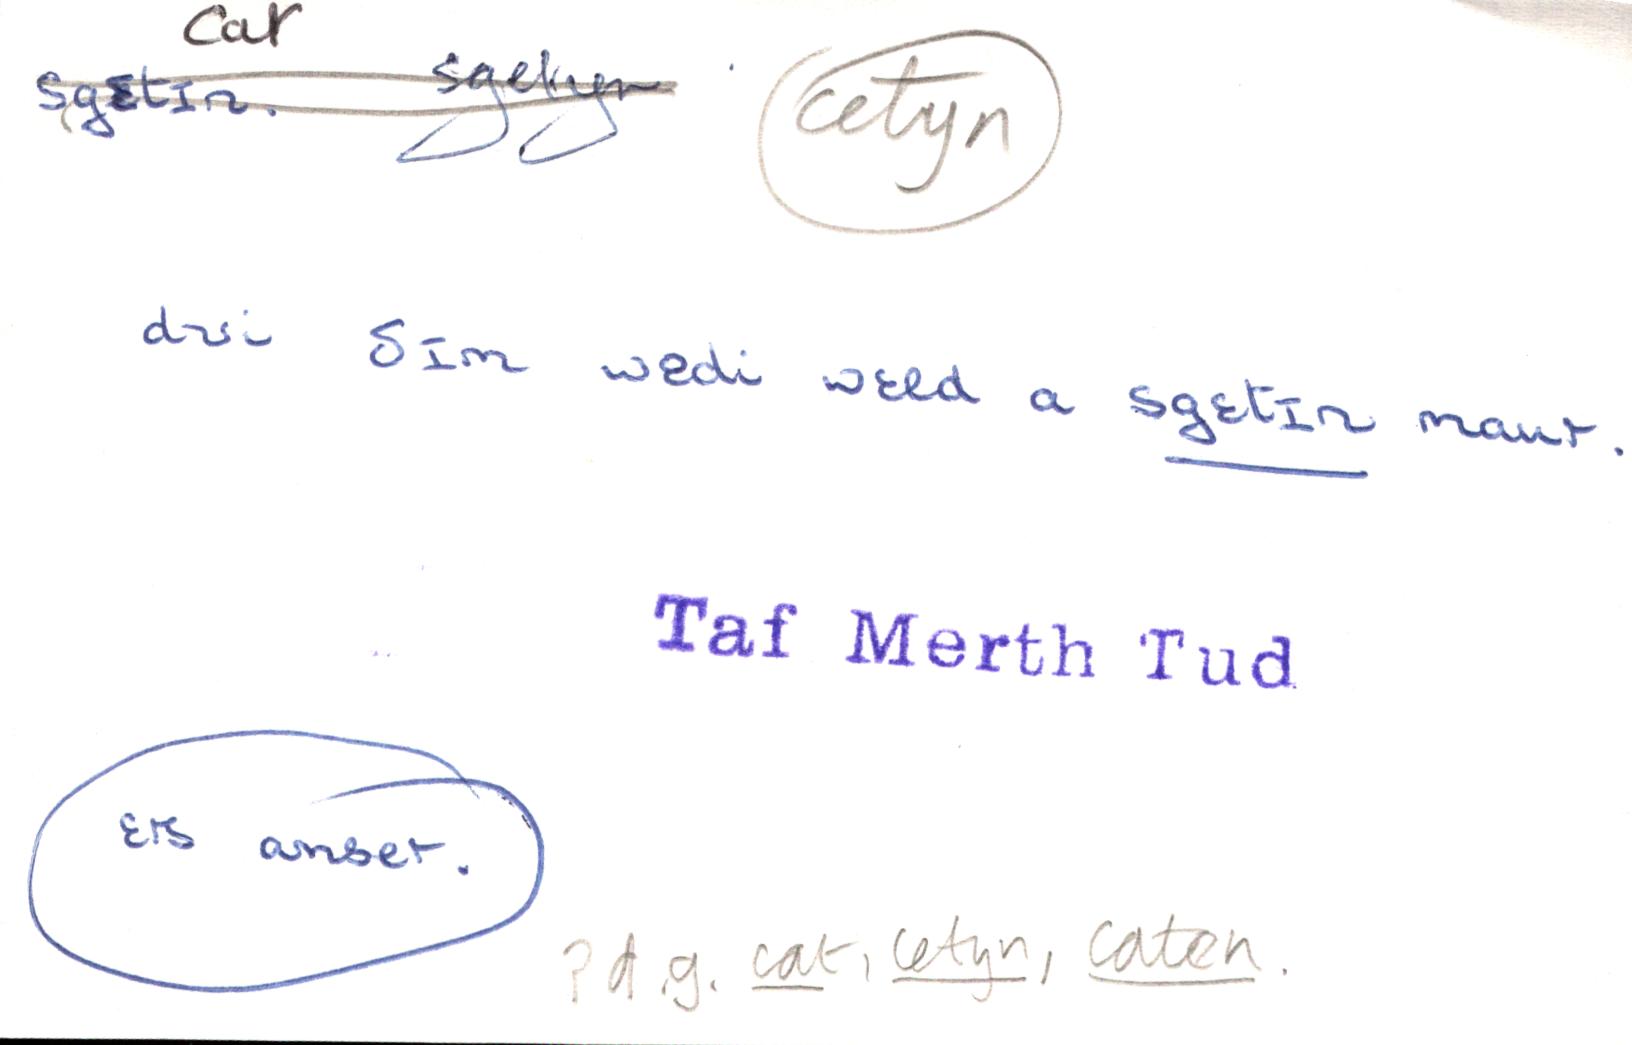 Cat
sgɛtɪn. sgetyn cetyn
dwi ðɪm wedi wɛld a sgɛtɪn maur.
Taf Merth Tud
ɛrs amser.
? d.g. cat, cetyn, caten.